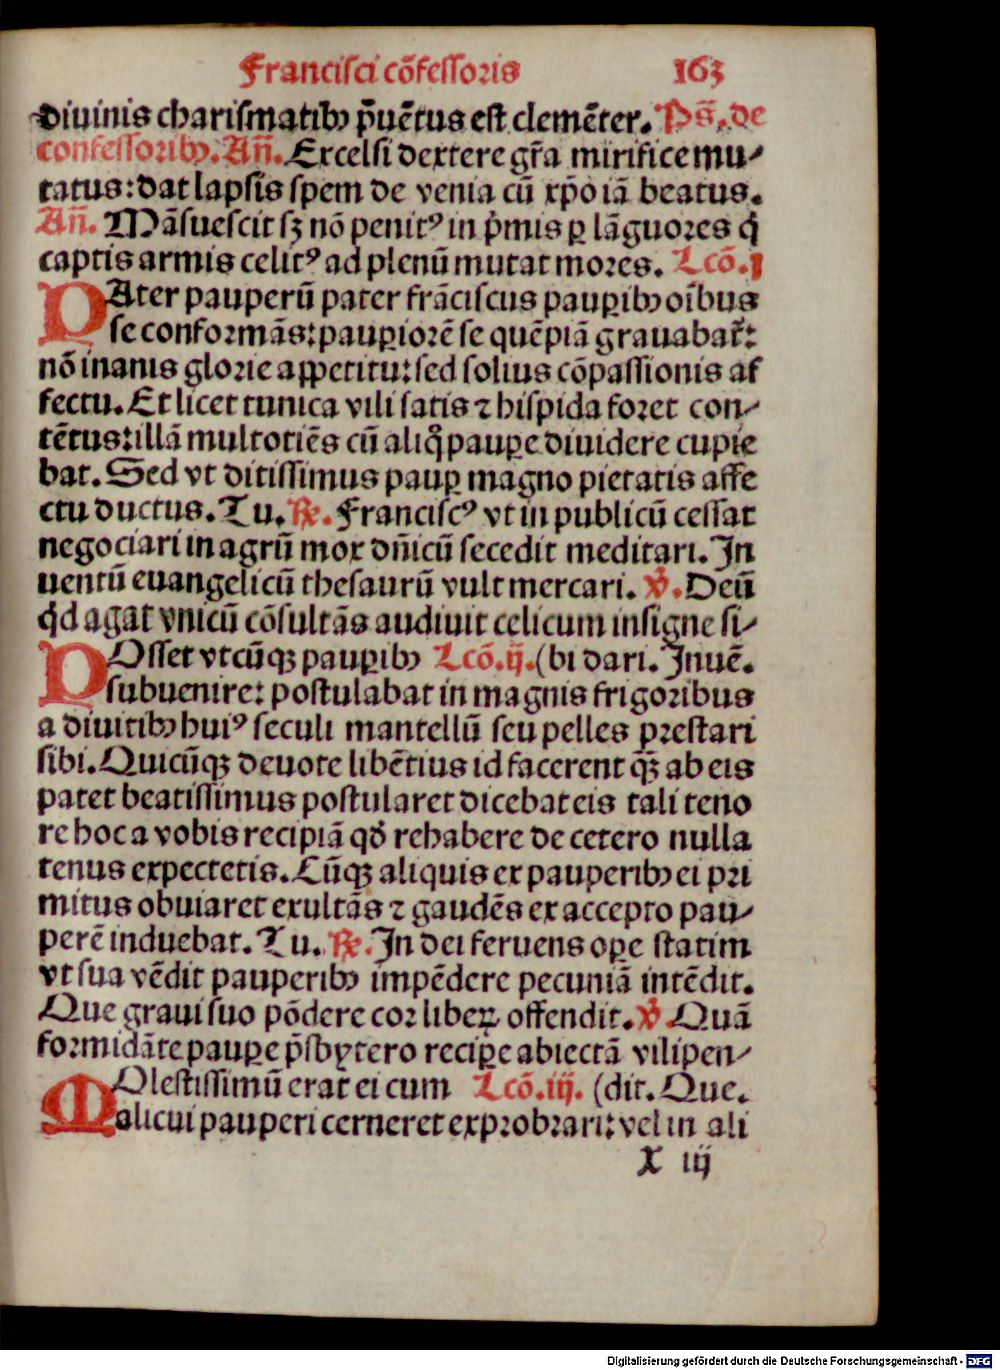 Franciſci cōfeſſoꝛis 163
diuinis chariſmatibꝰ p̄uētus eſt clemēter. Pṡ. de
confeſſoꝛibꝰ. Añ. Excelſi dextere gr̄a mirifice mu⸗
tatus: dat lapſis ſpem de venia cū xp̄o iā beatus.
Añ. Māſueſcit ſꝫ nō penitꝰ in p̄mis ꝑ lāguoꝛes q̇
captis armis celitꝰ ad plenū mutat moꝛes. Lcō. j
PAter pauperū pater frāciſcus pauꝑibꝰ oībus
ſe confoꝛmās: pauꝑioꝛē ſe quēpiā grauabat̄:
nō inanis gloꝛie aꝑpetitu: ſed ſolius cōpaſſionis af
fectu. Et licet tunica vili ſatis ⁊ hiſpida foꝛet con⸗
tētus: illā multotiēs cū aliq̊ pauꝑe diuidere cupie
bat. Sed vt ditiſſimus pauꝑ magno pietatis affe
ctu ductus. Tu. ℞. Franciſcꝰ vt in publicū ceſſat
negociari in agrū mox dñicū ſecedit meditari. In
uentū euangelicū theſaurū vult mercari. ℣. Deū
qͥd agat vnicū cōſultās audiuit celicum inſigne ſi⸗
POſſet vtcūqꝫ pauꝑibꝰ Lcō. ij. (bi dari. Inuē.
ſubuenire: poſtulabat in magnis frigoꝛibus
a diuitibꝰ huiꝰ ſeculi mantellū ſeu pelles pꝛeſtari
ſibi. Quicūqꝫ deuote libētius id facerent qꝫ̄ ab eis
patet beatiſſimus poſtularet dicebat eis tali teno
re hoc a vobis recipiā qd̓ rehabere de cetero nulla
tenus expectetis. Cūqꝫ aliquis ex pauperibꝰ ei pꝛi
mitus obuiaret exultās ⁊ gaudēs ex accepto pau⸗
perē induebat. Tu. ℞. In dei feruens oꝑe ſtatim
vt ſua vēdit pauperibꝰ impēdere pecuniā intēdit.
Que graui ſuo pōdere coꝛ libeꝝ offendit. ℣. Quā
foꝛmidāte pauꝑe p̄ſbytero reciꝑe abiectā vilipen⸗
MOleſtiſſimū erat ei cum Lcō. iij. (dit. Que.
alicui pauperi cerneret expꝛobꝛari: vel in ali
X iij
Digitalisierung gefördert durch die Deutsche Forschungsgemeinschaft - DFG